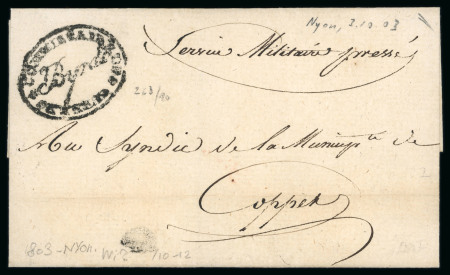 Nyon, 2.10.03
Service Militaire pressé
COMMISSAIRE
268/10
Au Syndic de la Municip.té de
Coppet
803-Nyon.
10-12